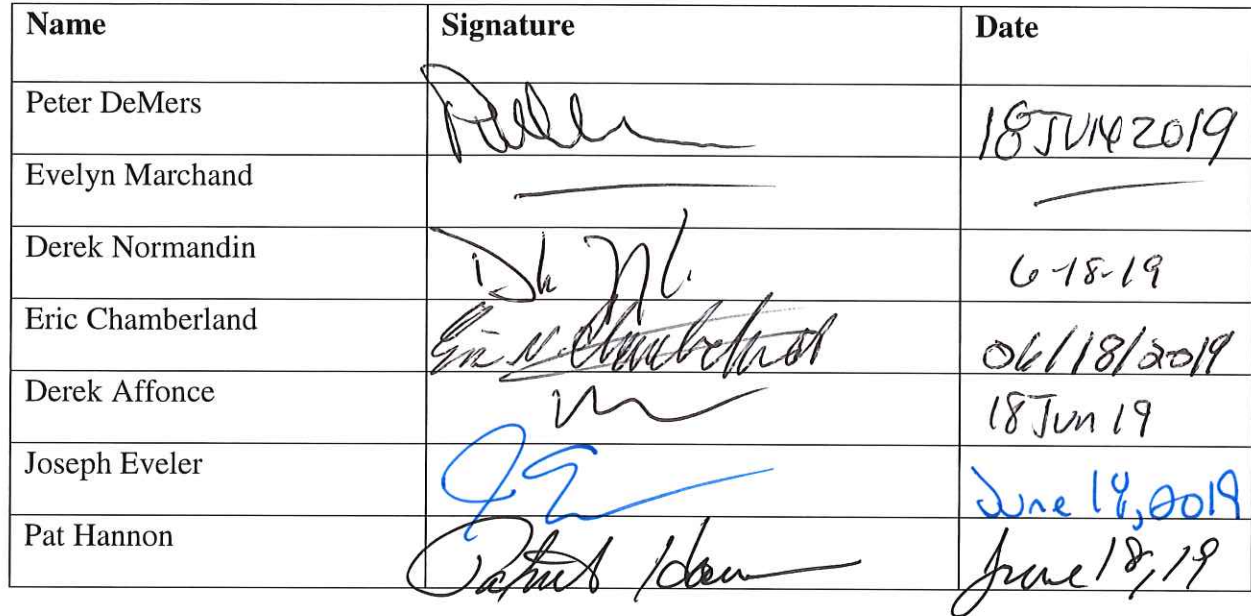 Name Signature Date
Peter DeMers 18 JUNE 2019
Evelyn Marchand
Derek Normandin 6-18-19
Eric Chamberland Eric N. Chamberland 06/18/2019
Derek Affonce 18 Jun 19
Joseph Eveler June 18, 2019
Pat Hannon Patrick Hannon June 18, 19